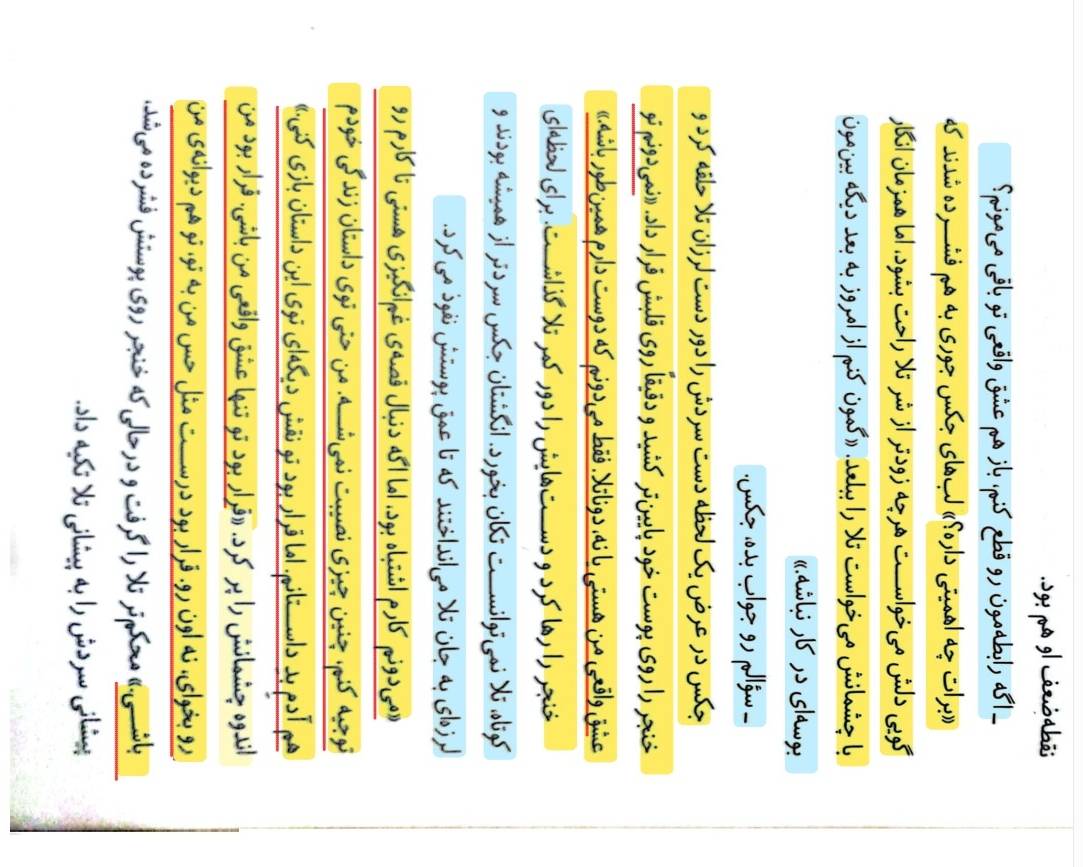 نقطه‌ضعف او هم بود.
ـ اگه رابطه‌مون رو قطع کنم، باز هم عشق واقعی تو باقی می‌مونم؟
«برات چه اهمیتی داره؟» لب‌های جکس جوری به هم فشرده شدند که
گویی دلش می‌خواست هرچه زودتر از شر تلا راحت بشود، اما همزمان انگار
با چشمانش می‌خواست تلا را ببلعد. «گمون کنم از امروز به بعد دیگه بین‌مون
بوسه‌ای در کار نباشه.»
ـ سؤالم رو جواب بده، جکس.
جکس در عرض یک لحظه دست سردش را دور دست لرزان تلا حلقه کرد و
خنجر را روی پوست خود پایین‌تر کشید و دقیقاً روی قلبش قرار داد. «نمی‌دونم تو
عشق واقعی من هستی یا نه، دوناتلا. فقط می‌دونم که دوست دارم همین‌طور باشه.»
خنجر را رها کرد و دست‌هایش را دور کمر تلا گذاشت. برای لحظه‌ای
کوتاه، تلا نمی‌توانست تکان بخورد. انگشتان جکس سردتر از همیشه بودند و
لرزه‌ای به جان تلا می‌انداختند که تا عمق پوستش نفوذ می‌کرد.
«می‌دونم کارم اشتباه بود، اما اگه دنبال قصه‌ی غم‌انگیزی هستی تا کارم رو
توجیه کنم، چنین چیزی نصیبت نمی‌شه. من حتی توی داستان زندگی خودم
هم آدم بد داستانم. اما قرار بود تو نقش دیگه‌ای توی این داستان بازی کنی.»
اندوه چشمانش را پر کرد. «قرار بود تو تنها عشق واقعی من باشی. قرار بود من
رو بخوای، نه اون رو. قرار بود درست مثل حس من به تو، تو هم دیوانه‌ی من
باشی.» محکم‌تر تلا را گرفت و درحالی‌که خنجر روی پوستش فشرده می‌شد،
پیشانی سردش را به پیشانی تلا تکیه داد.